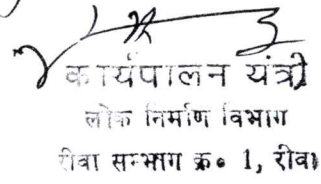 कार्यपालन यंत्री
लोक निर्माण विभाग
रीवा सम्भाग क्र॰ 1, रीवा